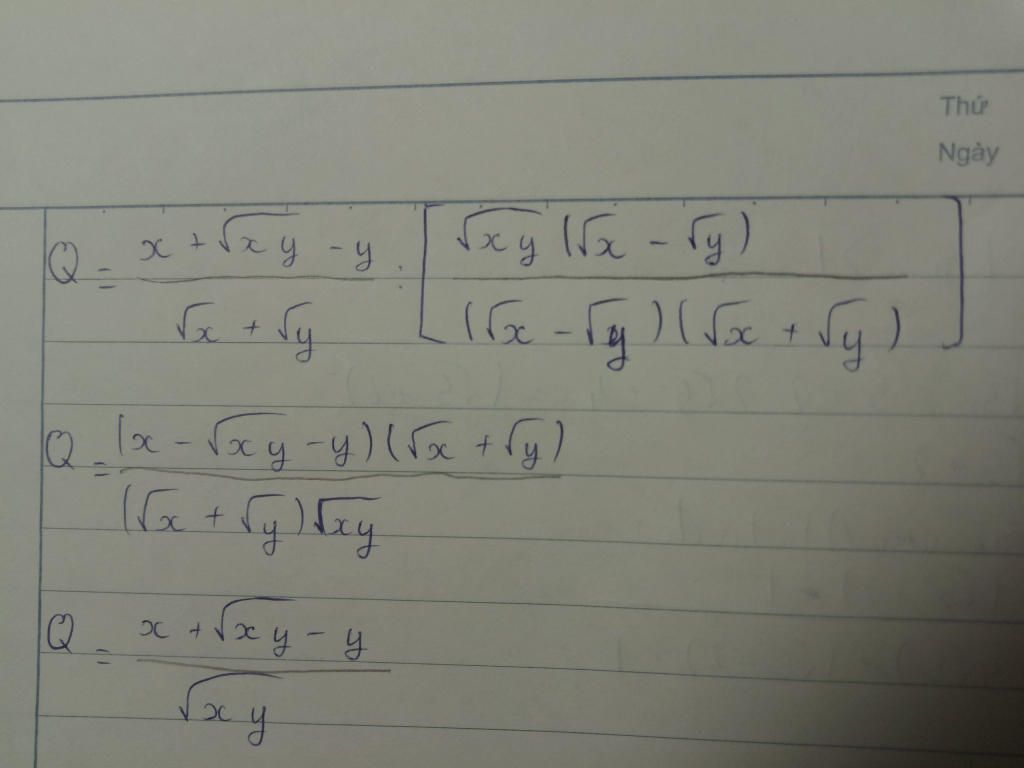 Thứ
Ngày
Q = \frac{x + \sqrt{xy} - y}{\sqrt{x} + \sqrt{y}} : \left[ \frac{\sqrt{xy} (\sqrt{x} - \sqrt{y})}{(\sqrt{x} - \sqrt{y})(\sqrt{x} + \sqrt{y})} \right]
Q = \frac{(x - \sqrt{xy} - y)(\sqrt{x} + \sqrt{y})}{(\sqrt{x} + \sqrt{y})\sqrt{xy}}
Q = \frac{x + \sqrt{xy} - y}{\sqrt{xy}}